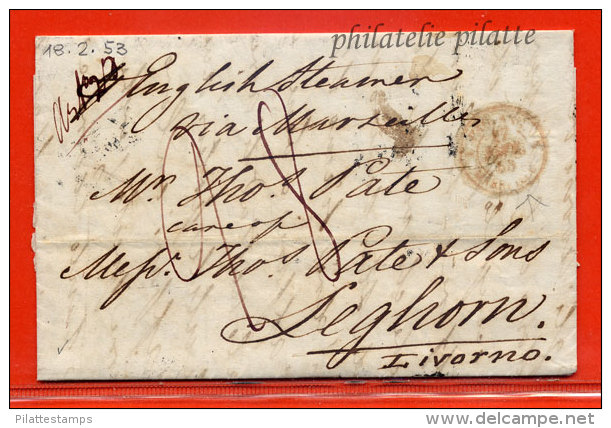 18.2.53
philatelie pilatte
English Steamer
via Marseilles
Mr. Thos. Pate
care of
Messrs. Thos. Pate & Sons
Leghorn.
Livorno.
Pilattestamps
delcampe.net